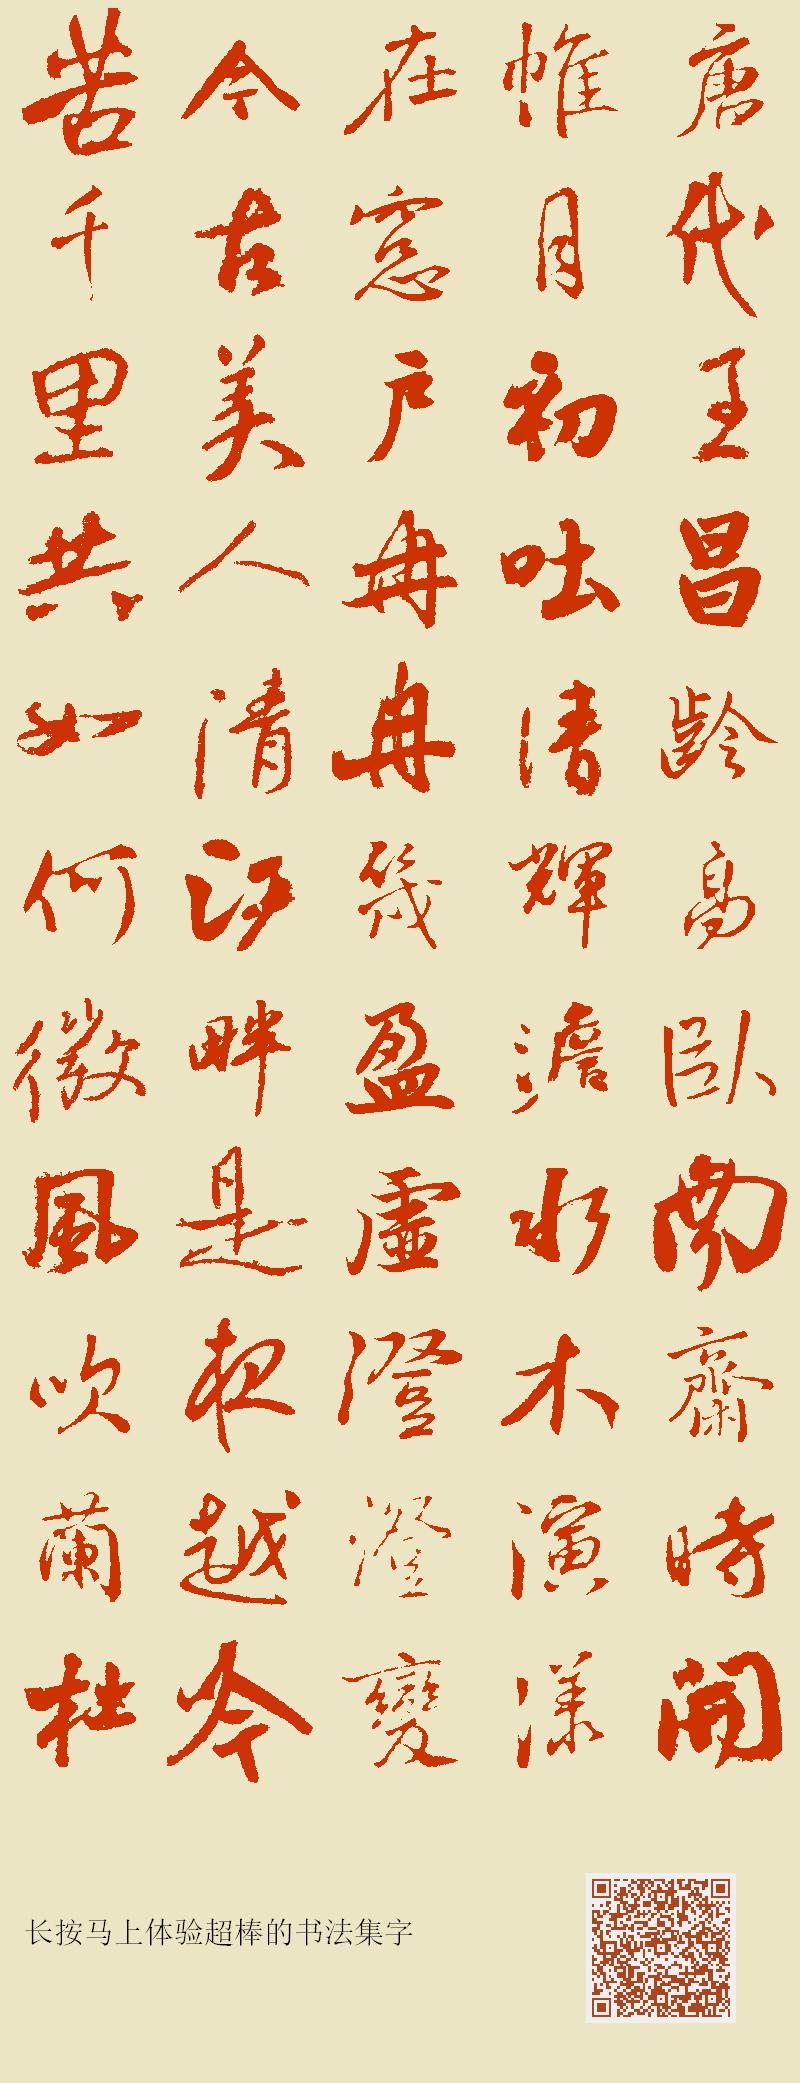 唐代王昌齡高臥南齋時開
帷月初吐清輝澹水木演漾
在窓戶冉冉幾盈虛澄澄變
今古美人清江畔是夜越吟
苦千里共如何微風吹蘭杜
长按马上体验超棒的书法集字